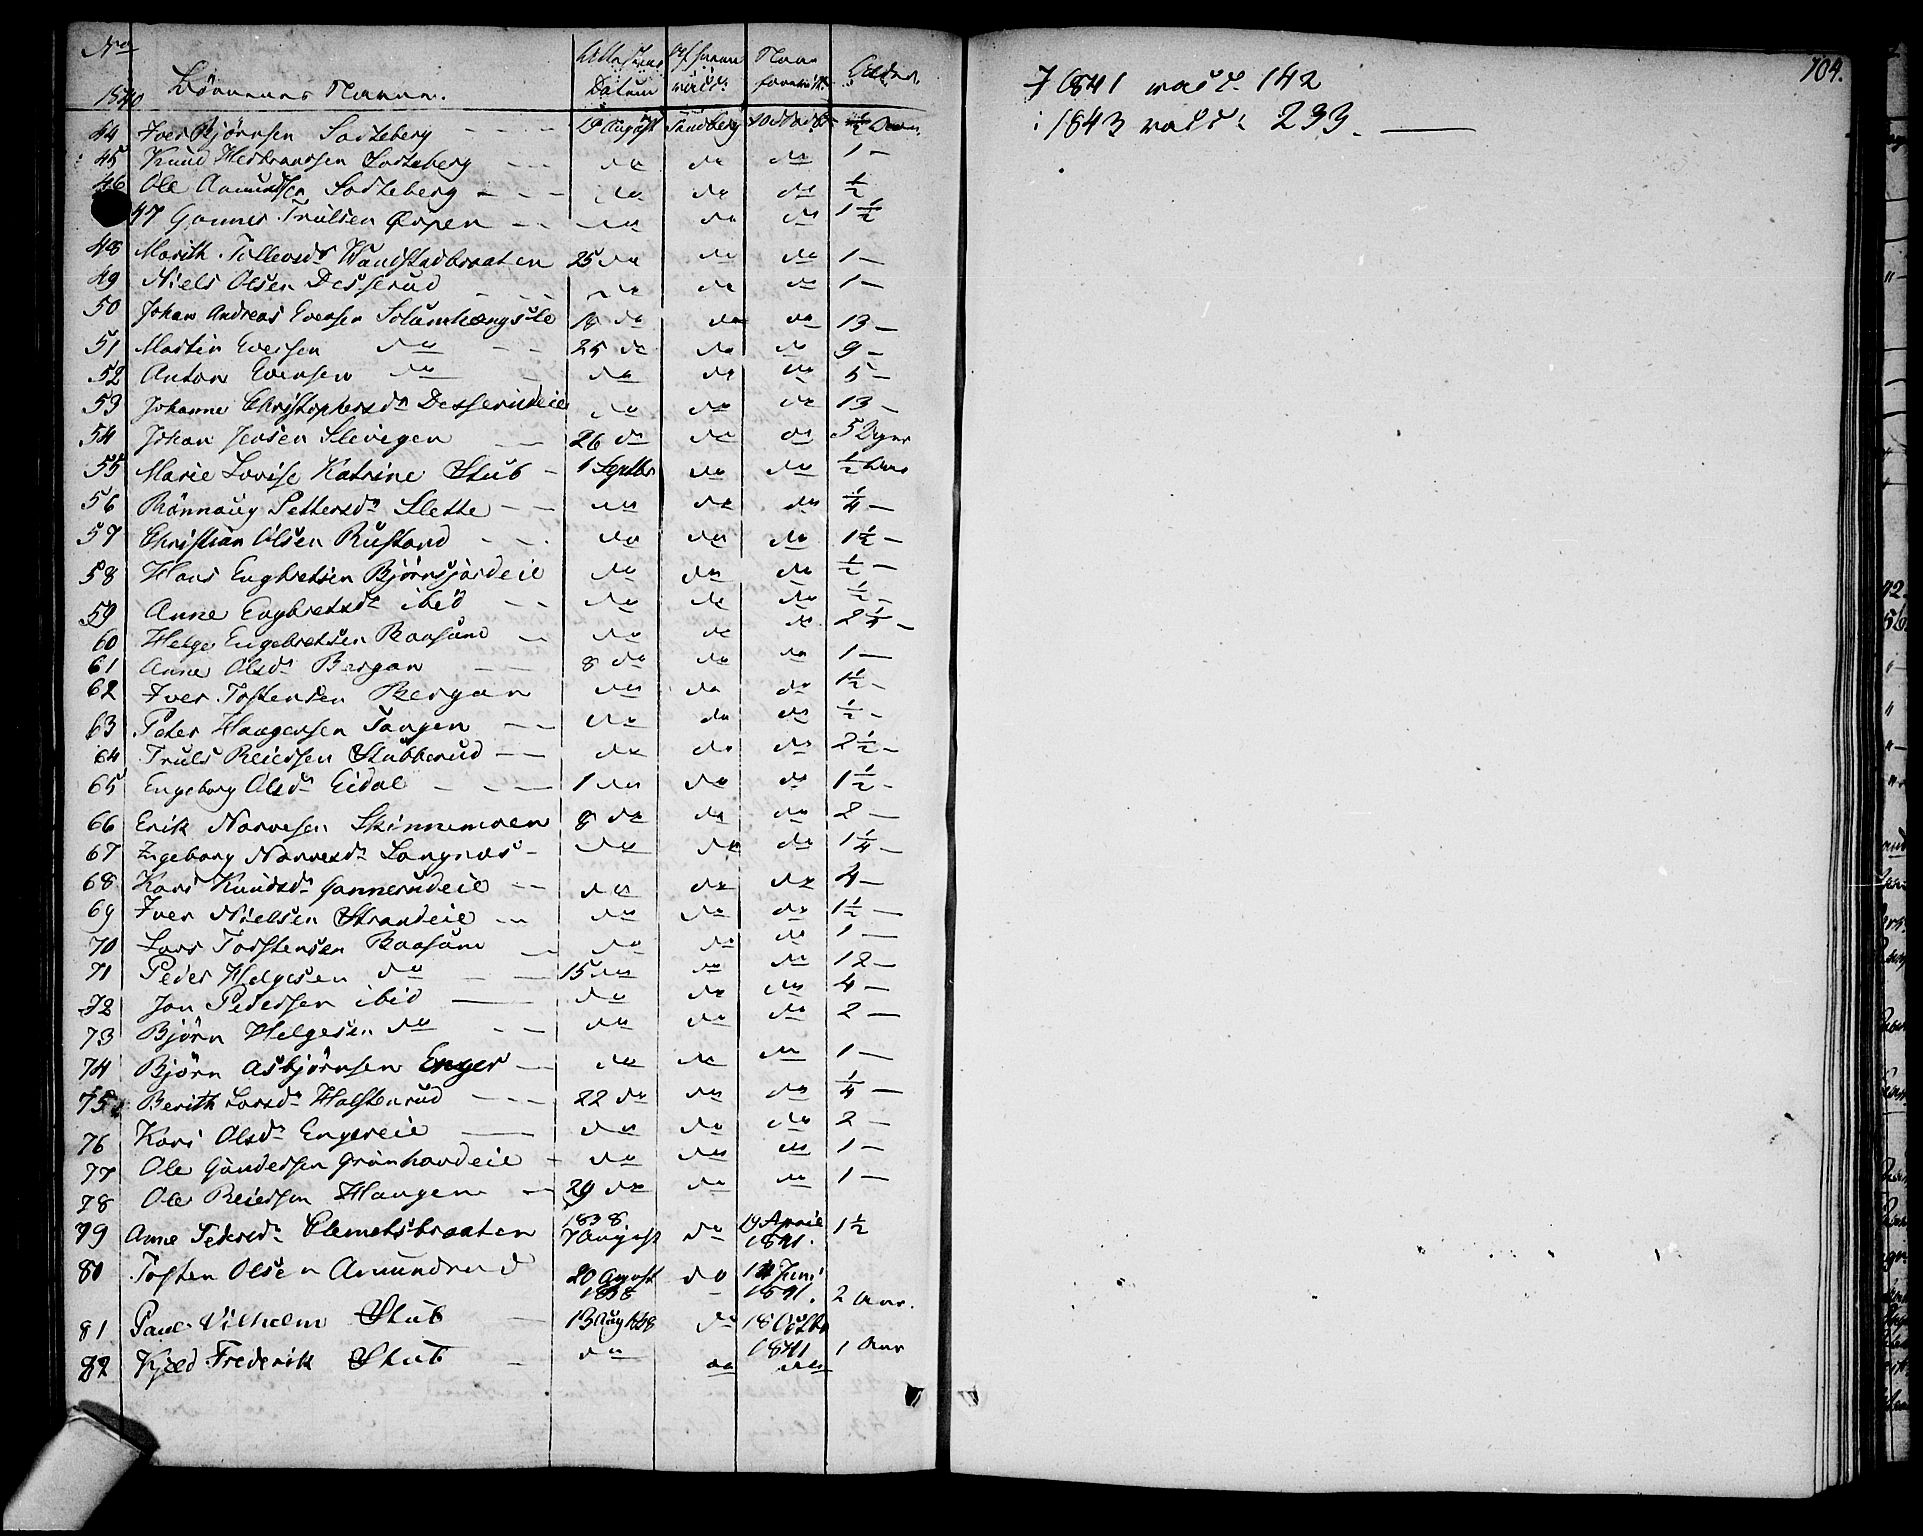 No
1840 Börnenes Navne. Attestens Datum Af hvem vacc: Naar foreviist Alder
44 Iver Bjørnsen Sodteberg - - - 19 August Sundberg 1 Aar
45 Knud Herbrandsen Sodteberg - - do do do 1 -
46 Ole Amundsen Sodteberg - - - do do do 1/2
47 Gunner Trulsen Ørpen - - do do do 1 1/2
48 Marith Tollevsdr Wandstadbraaten 25 do do do 1 -
49 Niels Olsen Desserud - - - do do do 1 -
50 Johan Andreas Evensen 18 do do do 13 -
51 Martin Evensen do - - 25 do do do 9 -
52 Anton Evensen do - do do do 5 -
53 Johanne Christophersdr Desserudeie do do do 13 -
54 Johan Jensen Slevigen - - 26 do do do 5 Uger
55 Marie Lovise Katrine Stub - 1 Septbr do do 1/2 Aar
56 Rønnaug Pettersdr Slette - - do do do 1/4 -
57 Christian Olsen Rustand - - - do do do 1 1/2 -
58 Hans Engbretsen Bjørnsjordeie do do do 1/2 -
59 Anne Engbretsdr ibid - - do do do 1/2 -
60 Helge Engebretsen Baasum - do do do 2 1/4 -
61 Anne Olsdr Bergan - - 8 do do do 1 -
62 Iver Tostensen Bergan do do do 1 1/2 -
63 Peter Haagensen Tangen - - do do do 1/2 -
64 Truls Reiersen Stubberud - - do do do 2 1/2 -
65 Engeborg Olsdr Eidal - - - 1 do do do 1 1/2 -
66 Erik Narvesen Skinnemoen 8 do do do 2 -
67 Ingeborg Narvesdr Langnæs - do do do 1 1/4 -
68 Kari Knudsdr Gunnerudeie - - do do do 4 -
69 Iver Nielsen Strandeie - - do do do 1 1/2 -
70 Lars Torstensen Baasum - do do do 1 -
71 Peder Helgesen do - - 15 do do do 12 -
72 Jon Pedersen ibid - do do do 4 -
73 Bjørn Helgesen do - - do do do 2 -
74 Bjørn Asbjørnsen Enger - do do do 1 -
75 Berith Larsdr Halstenrud - - - 22 do do do 1/4 -
76 Kari Olsdr Engereie - do do do 2 -
77 Ole Gundersen Grønhovdeie - do do do 1 -
78 Ole Reiersen Haugen - 29 do do do 1 -
79 Anne Pedersdr Clemetsbraaten 1838 7 August do 19 April 1841. 1 1/2
80 Tosten Olsen Amundrud 20 August 1838 do 14 Juni 1841. 2 Aar.
81 Paul Vilhelm Stub - 13 Aug 1838 do 18 1841 1 Aar
82 Kjeld Frederik Stub - do do do
704.
I 1841 vacc: 142
i 1843 vacc: 233.